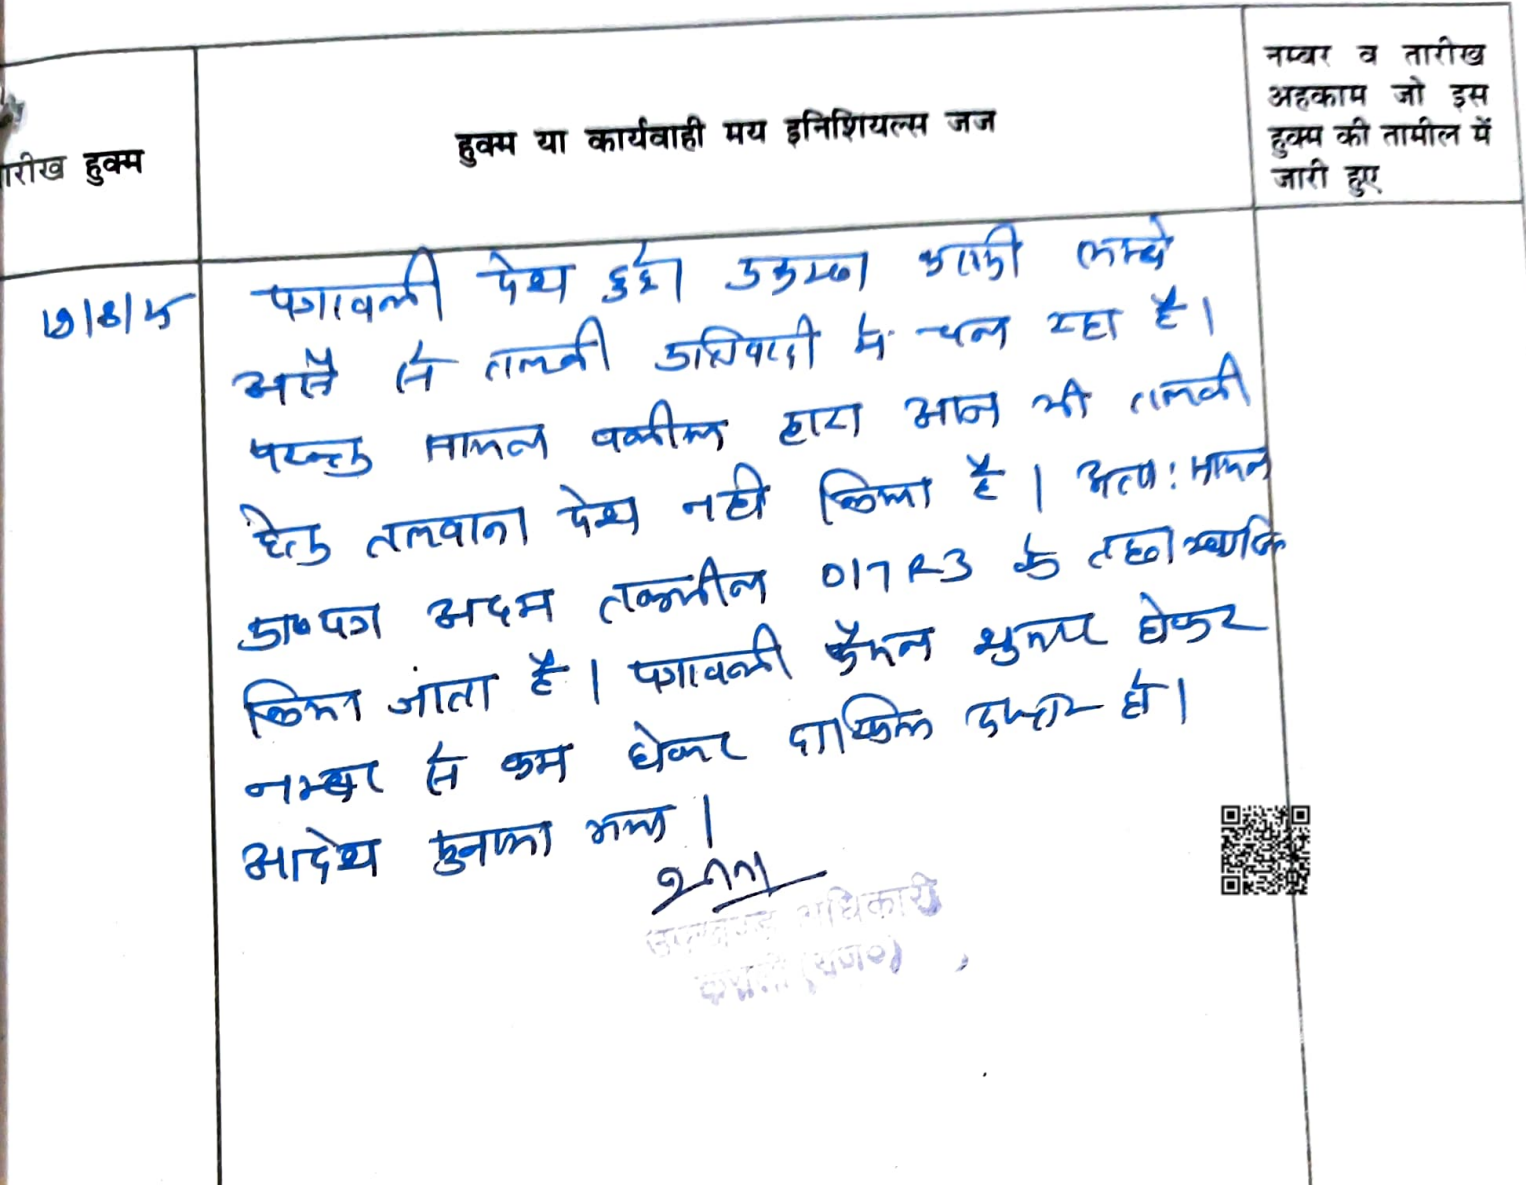 तारीख हुक्म
हुक्म या कार्यवाही मय इनिशियल्स जज
नम्बर व तारीख
अहकाम जो इस
हुक्म की तामील में
जारी हुए
पत्रावली पेश हुई। प्रकरण काफी लम्बे
अर्से से तलबी प्रतिवादी में चल रहा है।
परन्तु सायल वकील द्वारा आज भी तलबी
हेतु तलवाना पेश नही किया है। अतः सायल
प्रा०पत्र अदम तकमील O17 R3 के तहत खारिज
किया जाता है। पत्रावली फैसल शुमार होकर
नम्बर से कम होकर दाखिल दफ्तर हो।
आदेश सुनाया गया।
उपखण्ड अधिकारी
(राज०)